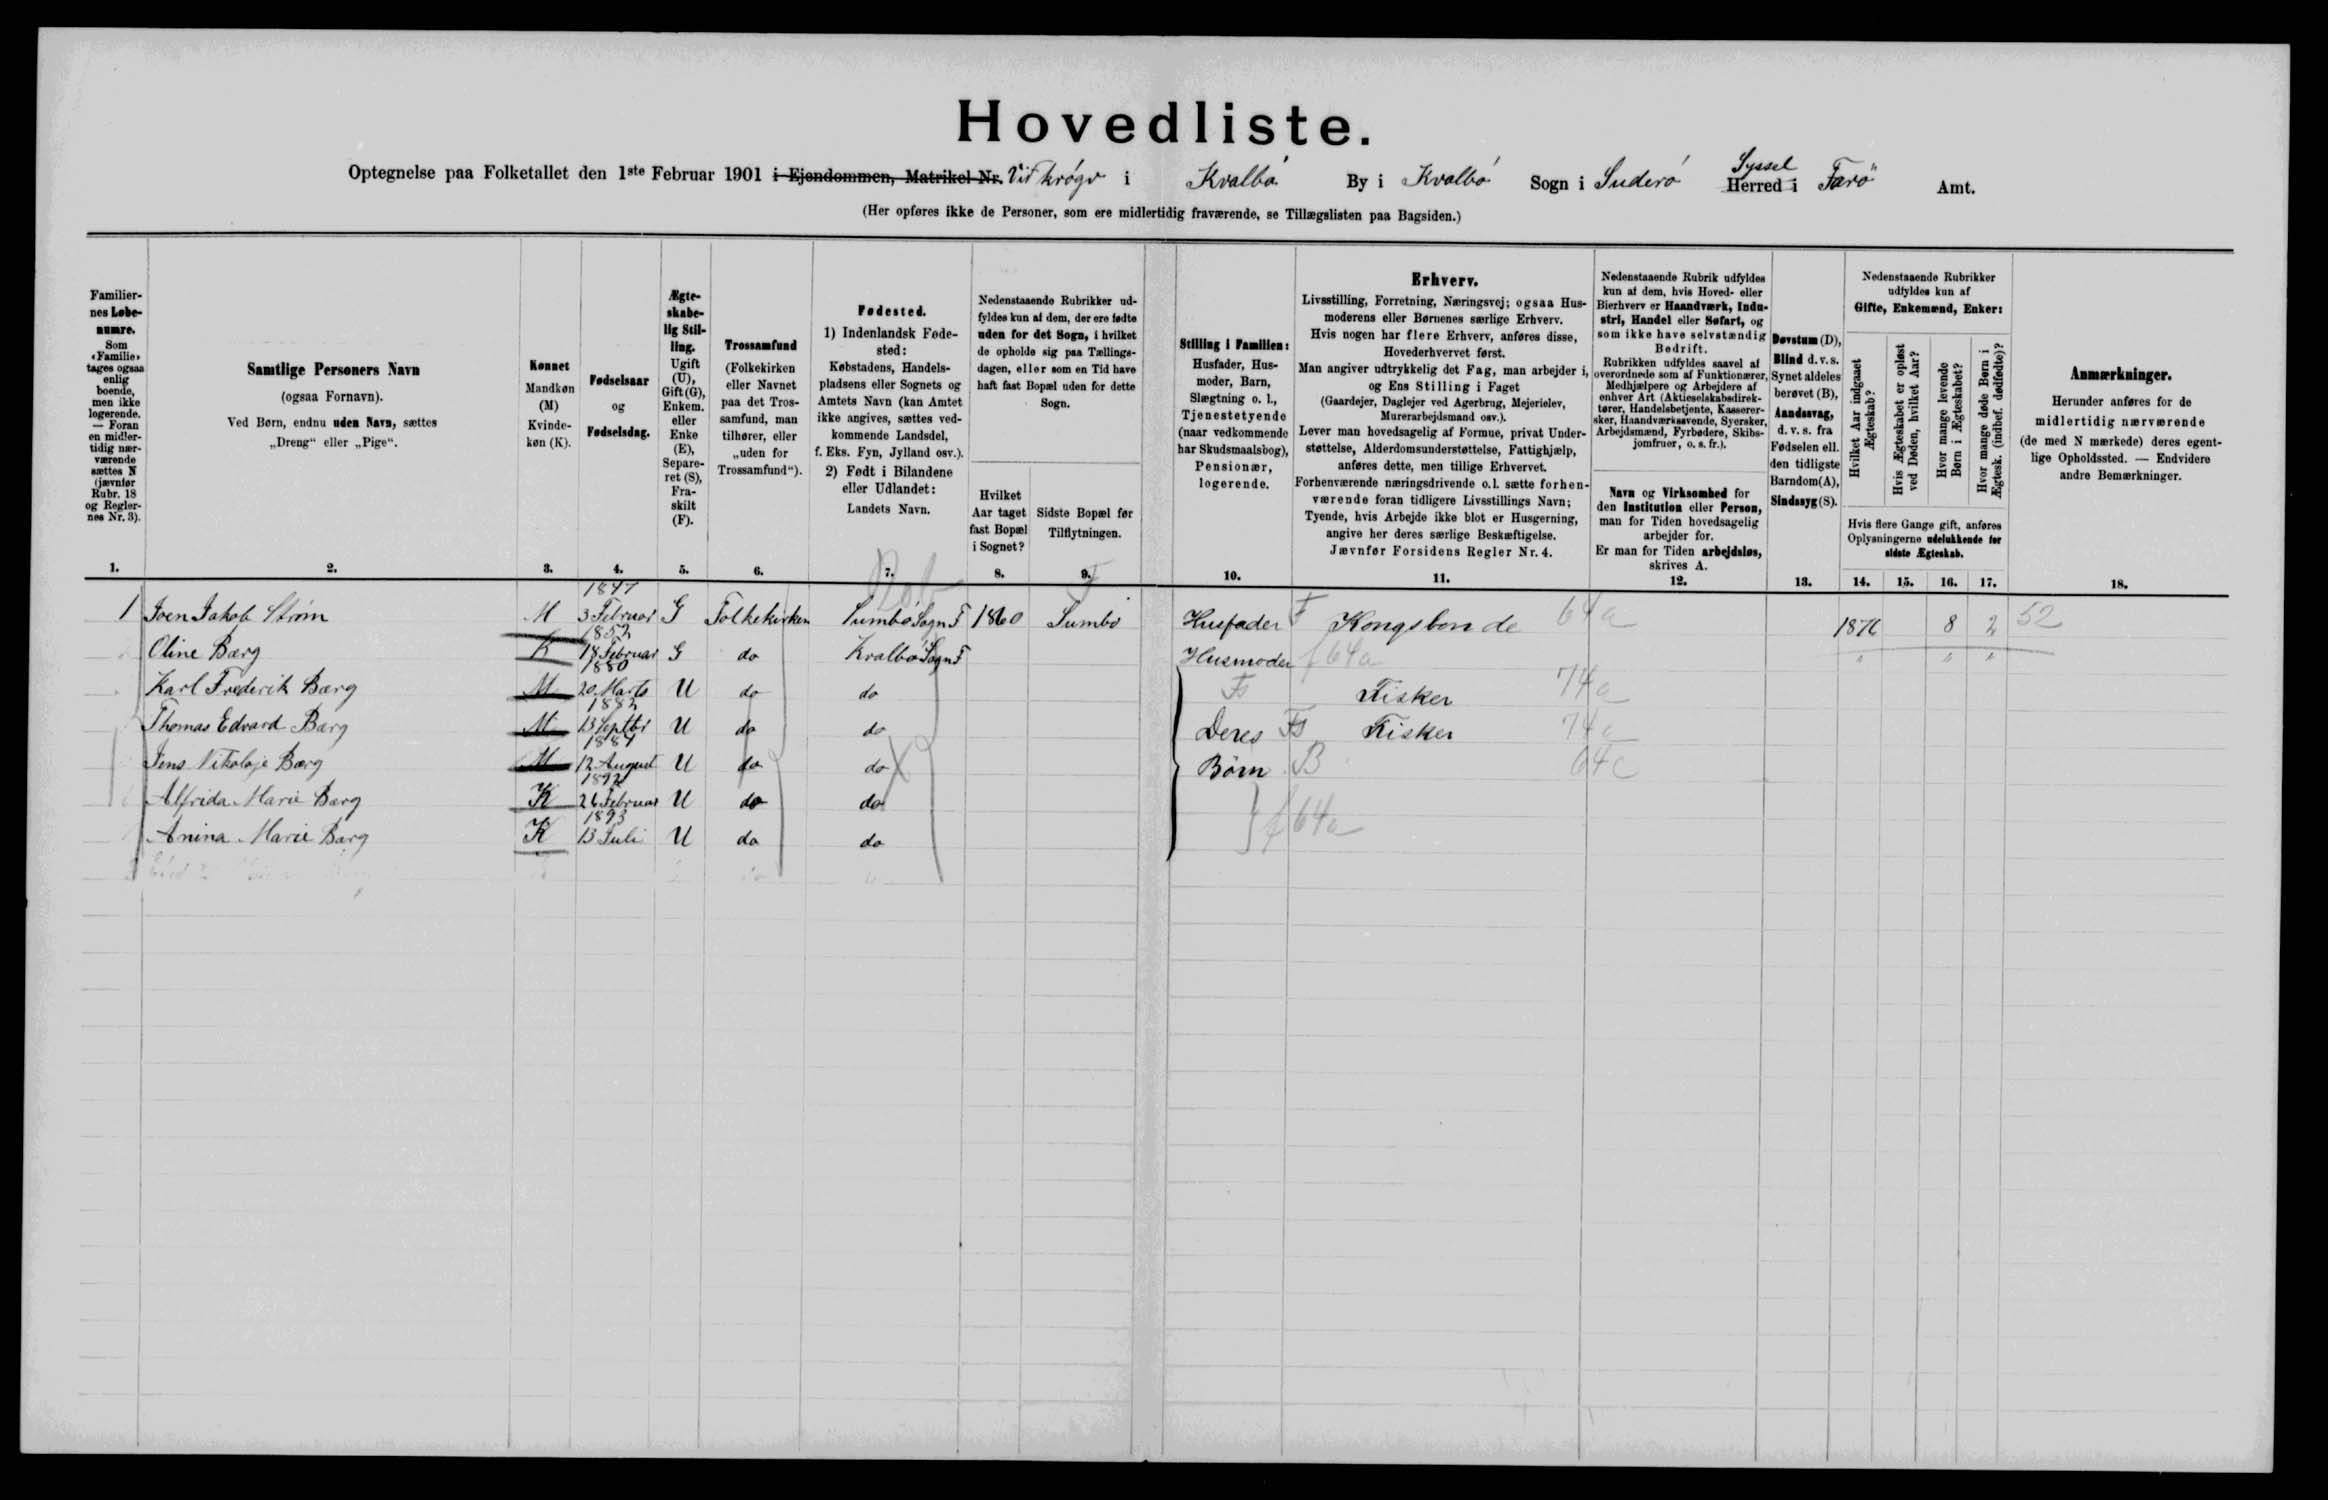 Hovedliste.
Optegnelse paa Folketallet den 1ste Februar 1901 i Ejendommen, Matrikel Nr. Við krógv i Kvalbö By i Kvalbö Sogn i Suderö Syssel Herred i Farö Amt.
(Her opføres ikke de Personer, som ere midlertidig fraværende, se Tillægslisten paa Bagsiden.)
Familiernes Løbenumre.
Som «Familie» tages ogsaa enlig boende, men ikke logerende. — Foran en midlertidig nærværende sættes N (jævnfør Rubr. 18 og Reglernes Nr. 3).
1.
Samtlige Personers Navn
(ogsaa Fornavn).
Ved Børn, endnu uden Navn, sættes
„Dreng“ eller „Pige“.
2.
Kønnet
Mandkøn
(M)
Kvinde-
køn (K).
3.
Fødselsaar
og
Fødselsdag.
4.
Ægteskabelig Stilling.
Ugift (U), Gift (G), Enkem. eller Enke (E), Separeret (S), Fraskilt (F).
5.
Trossamfund
(Folkekirken
eller Navnet
paa det Tros-
samfund, man
tilhører, eller
„uden for
Trossamfund“).
6.
Fødested.
1) Indenlandsk Føde-
sted:
Købstadens, Handels-
pladsens eller Sognets og
Amtets Navn (kan Amtet
ikke angives, sættes ved-
kommende Landsdel,
f. Eks. Fyn, Jylland osv.).
2) Født i Bilandene
eller Udlandet:
Landets Navn.
7.
Nedenstaaende Rubrikker ud-
fyldes kun af dem, der ere fødte
uden for det Sogn, i hvilket
de opholde sig paa Tællings-
dagen, eller som en Tid have
haft fast Bopæl uden for dette
Sogn.
Hvilket
Aar taget
fast Bopæl
i Sognet?
8.
Sidste Bopæl før
Tilflytningen.
9.
Stilling i Familien:
Husfader, Hus-
moder, Barn,
Slægtning o. l.,
Tjenestetyende
(naar vedkommende
har Skudsmaalsbog),
Pensionær,
logerende.
10.
Erhverv.
Livsstilling, Forretning, Næringsvej; ogsaa Hus-
moderens eller Børnenes særlige Erhverv.
Hvis nogen har flere Erhverv, anføres disse,
Hovederhvervet først.
Man angiver udtrykkelig det Fag, man arbejder i,
og Ens Stilling i Faget
(Gaardejer, Daglejer ved Agerbrug, Mejerielev,
Murerarbejdsmand osv.).
Lever man hovedsagelig af Formue, privat Under-
støttelse, Alderdomsunderstøttelse, Fattighjælp,
anføres dette, men tillige Erhvervet.
Forhenværende næringsdrivende o. l. sætte forhen-
værende foran tidligere Livsstillings Navn;
Tyende, hvis Arbejde ikke blot er Husgerning,
angive her deres særlige Beskæftigelse.
Jævnfør Forsidens Regler Nr. 4.
11.
Nedenstaaende Rubrik udfyldes
kun af dem, hvis Hoved- eller
Bierhverv er Haandværk, Indu-
stri, Handel eller Søfart, og
som ikke have selvstændig
Bedrift.
Rubrikken udfyldes saavel af
overordnede som af Funktionærer,
Medhjælpere og Arbejdere af
enhver Art (Aktieselskabsdirek-
tører, Handelsbetjente, Kasserer-
sker, Haandværkssvende, Syersker,
Arbejdsmænd, Fyrbødere, Skibs-
jomfruer, o. s. fr.).
Navn og Virksomhed for
den Institution eller Person,
man for Tiden hovedsagelig
arbejder for.
Er man for Tiden arbejdsløs,
skrives A.
12.
Døvstum (D),
Blind d. v. s.
Synet aldeles
berøvet (B),
Aandssvag,
d. v. s. fra
Fødselen ell.
den tidligste
Barndom (A),
Sindssyg (S).
13.
Nedenstaaende Rubrikker
udfyldes kun af
Gifte, Enkemænd, Enker:
Hvilket Aar indgaaet Ægteskab?
Hvis Ægteskabet er opløst ved Døden, hvilket Aar?
Hvor mange levende Børn i Ægteskabet?
Hvor mange døde Børn i Ægtesk. (indbef. dødfødte)?
Hvis flere Gange gift, anføres
Oplysningerne udelukkende for
sidste Ægteskab.
14. 15. 16. 17.
Anmærkninger.
Herunder anføres for de
midlertidig nærværende
(de med N mærkede) deres egent-
lige Opholdssted. — Endvidere
andre Bemærkninger.
18.
1 Joen Jakob Strøm M 1847 3 Februar G Folkekirken Sumbö Sogn F 1860 Sumbö Husfader F Kongsbonde 64a 1876 8 2 52
Oline Barg K 1852 18 Februar G do Kvalbö Sogn F Husmoder f 64a " " "
Karl Frederik Barg M 1880 20 Marts U do do Fs Fisker 74a
Thomas Edvard Barg M 1882 13 Septbr U do do Deres Fs Fisker 74a
Jens Nikolaje Barg M 1884 12 August U do do Børn B 64c
Alfrida Marie Barg K 1892 26 Februar U do do
Anina Marie Barg K 1893 13 Juli U do do f 64a